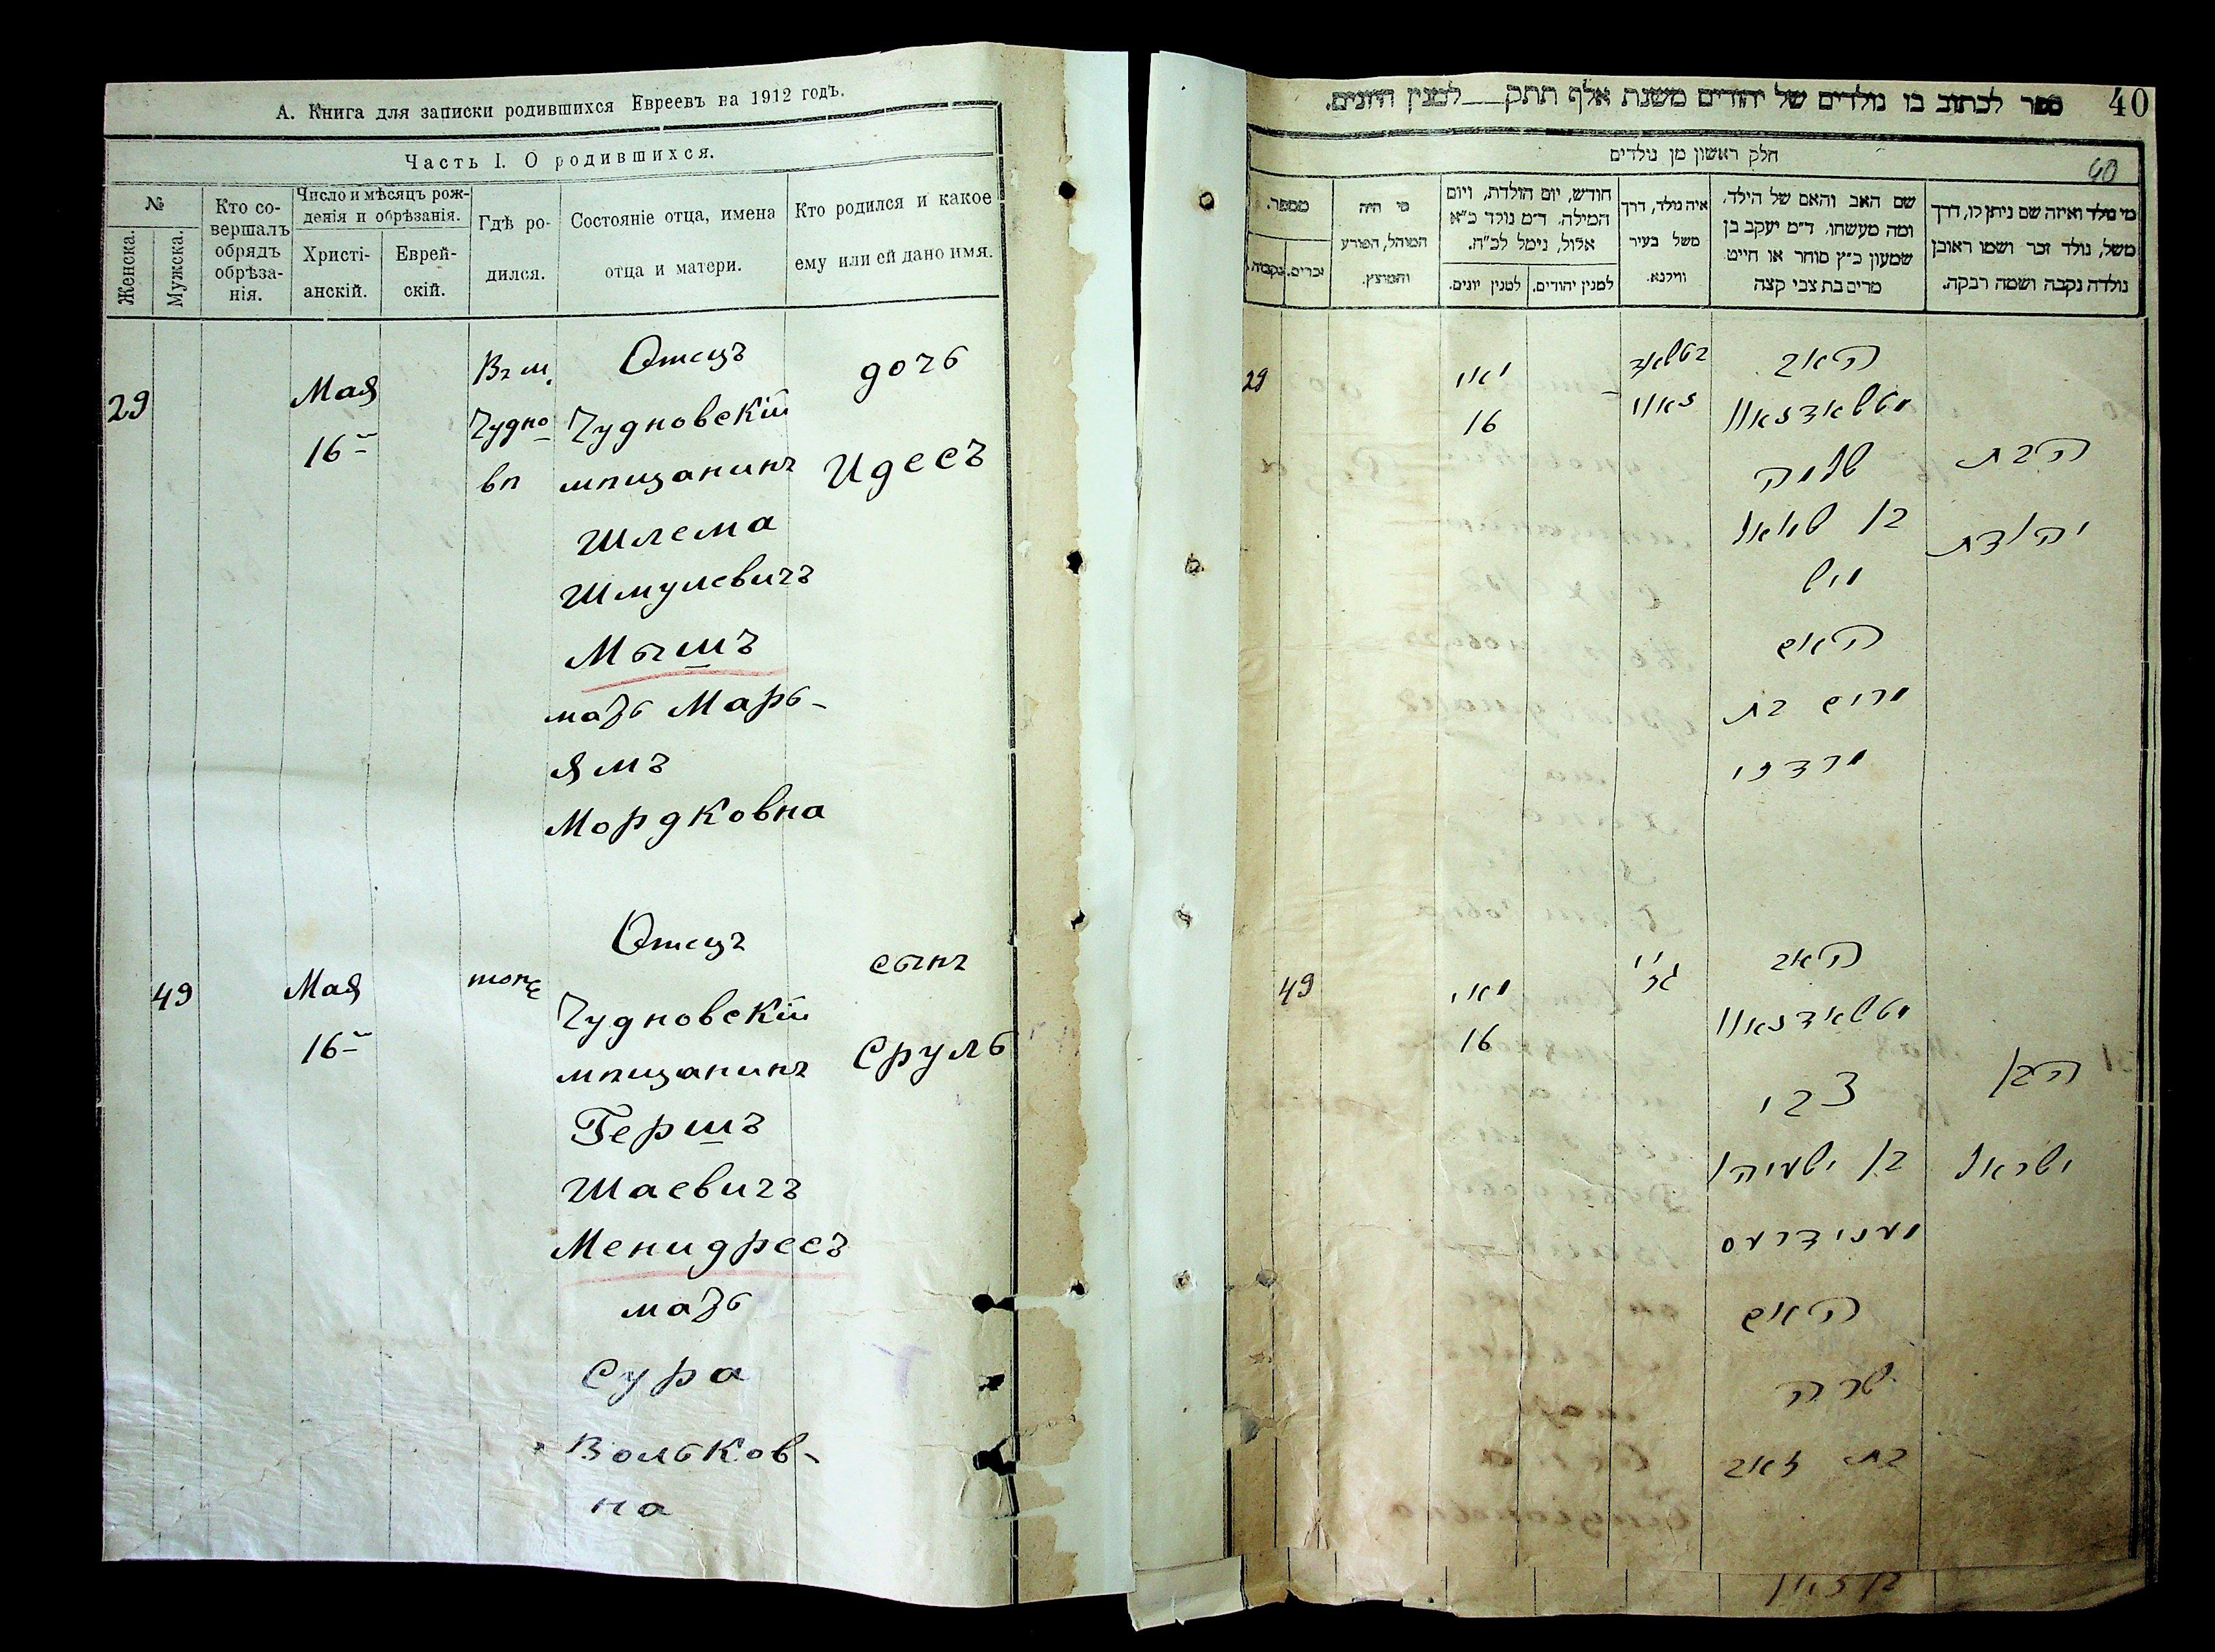 А. Книга для записки родившихся Евреевъ на 1912 годъ.
Часть I. О родившихся.
№
Женска.
Мужска.
Кто со-
вершалъ
обрядъ
обрѣза-
нія.
Число и мѣсяцъ рож-
денія и обрѣзанія.
Христі-
анскій.
Еврей-
скій.
Гдѣ ро-
дился.
Состояніе отца, имена
отца и матери.
Кто родился и какое
ему или ей дано имя.
29
Мая
16
Въ м.
Чудно
вѣ
Отецъ
Чудновскій
мѣщанинъ
Шлема
Шмулевичъ
Мышъ
мать Марь-
ямъ
Мордковна
дочь
Идесъ
49
Мая
16
тоже
Отецъ
Чудновскій
мѣщанинъ
Гершъ
Шаевичъ
Менидресъ
мать
Сура
Вольков-
на
сынъ
Сруль
ספר לכתוב בו נולדים של יהודים משנת אלף תתק___למנין היונים.
40
חלק ראשון מן נולדים
40
מי נולד ואיזה שם ניתן לו, דרך
משל, נולד זכר ושמו ראובן
נולדה נקבה ושמה רבקה.
שם האב והאם של הילד,
ומה מעשהו. ד״מ יעקב בן
שמעון כ״ץ סוחר או חייט
מרים בת צבי קצה
איה נולד, דרך
משל בעיר
ווילנא.
חודש, יום הולדת, ויום
המילה. ד״מ נולד כ״א
אלול, נימל לכ״ח.
למנין יהודים.
למנין יונים.
מי היה
המוהל, הפורע
והמוצץ.
מספר.
זכרים.
נקבות.
29
מאי
16
האב
שלמה
בן שמואל
מיש
האם
מרים בת
מרדכי
הבת
יהודת
49
מאי
16
האב
צבי
בן ישעיהו
מענידרעס
האם
שרה
בת זאב
הבן
ישראל